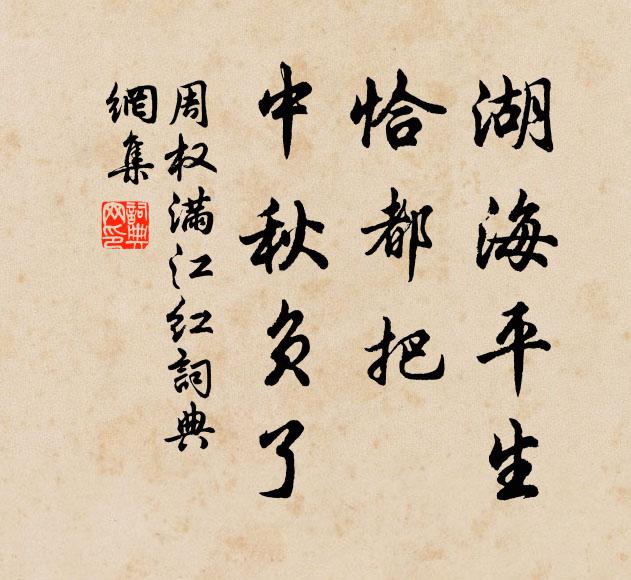 湖海平生
恰都把
中秋負了
周权满江红詞典
網集
詞典
网印